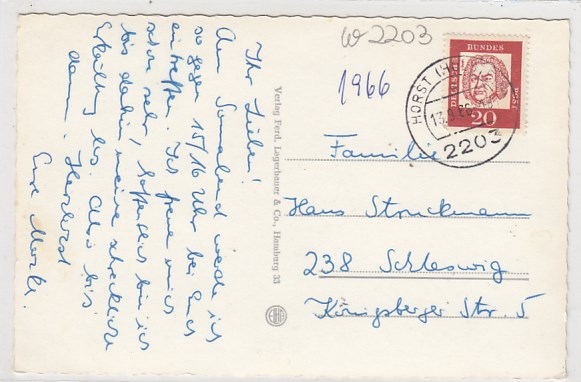 Ihr Lieben!
Am Sonnabend werde ich
so gegen 15/16 Uhr bei Euch
eintreffen. Ich freue mich
schon sehr, hoffentlich bin ich
bis dahin meine schreckliche
Erkältung los. Also bis
dann. Herzlichst
Eure
W 2203
1966
DEUTSCHE
BUNDES
POST
20
HORST (H
2203
Verlag Ferd. Lagerbauer & Co., Hamburg 33
Familie
Hans Struckmann
238 Schleswig
Königsberger Str. 5